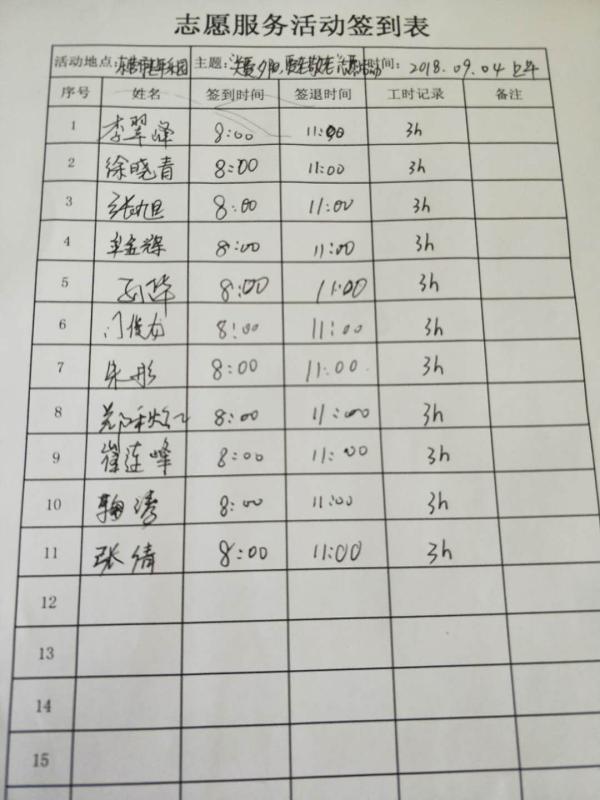 志愿服务活动签到表
活动地点: 主题: 时间: 2018.09.04 上午
序号 姓名 签到时间 签退时间 工时记录 备注
1 李翠峰 8:00 11:00 3h
2 徐晓青 8:00 11:00 3h
3 张旭 8:00 11:00 3h
4 金辉 8:00 11:00 3h
5 8:00 11:00 3h
6 门俊 8:00 11:00 3h
7 朱彤 8:00 11:00 3h
8 郑秋红 8:00 11:00 3h
9 崔连峰 8:00 11:00 3h
10 鞠涛 8:00 11:00 3h
11 张倩 8:00 11:00 3h
12
13
14
15